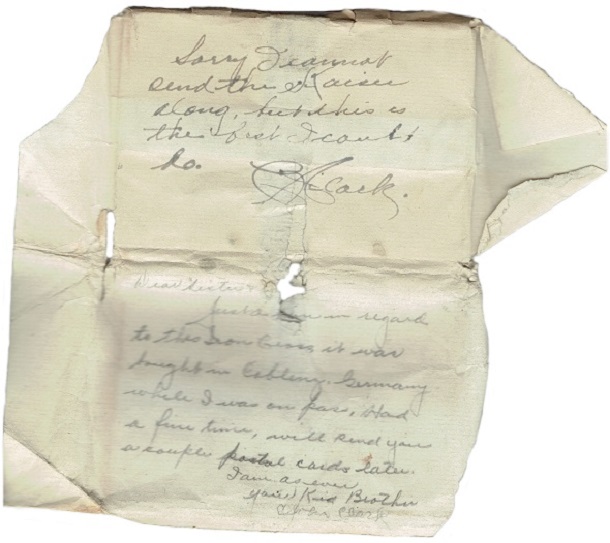 Sorry I cannot
send the Kaiser
along, but this is
the best I could
do.
Clark.
Dear Sister &
Just a line in regard
to this Iron Cross it was
bought in Coblenz, Germany.
while I was on pass, Had
a fine time, will send you
a couple postal cards later.
I am as ever
your Kid Brother
Clark